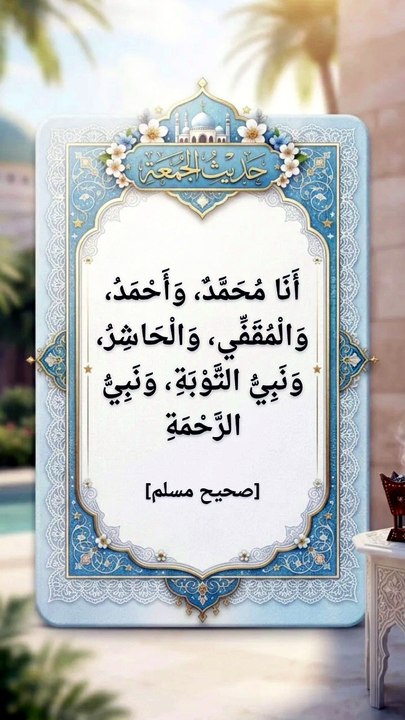 حَدِيْثُ الجُمُعَة
أَنَا مُحَمَّدٌ، وَأَحْمَدُ،
وَالْمُقَفِّي، وَالْحَاشِرُ،
وَنَبِيُّ التَّوْبَةِ، وَنَبِيُّ
الرَّحْمَةِ
[صحيح مسلم]